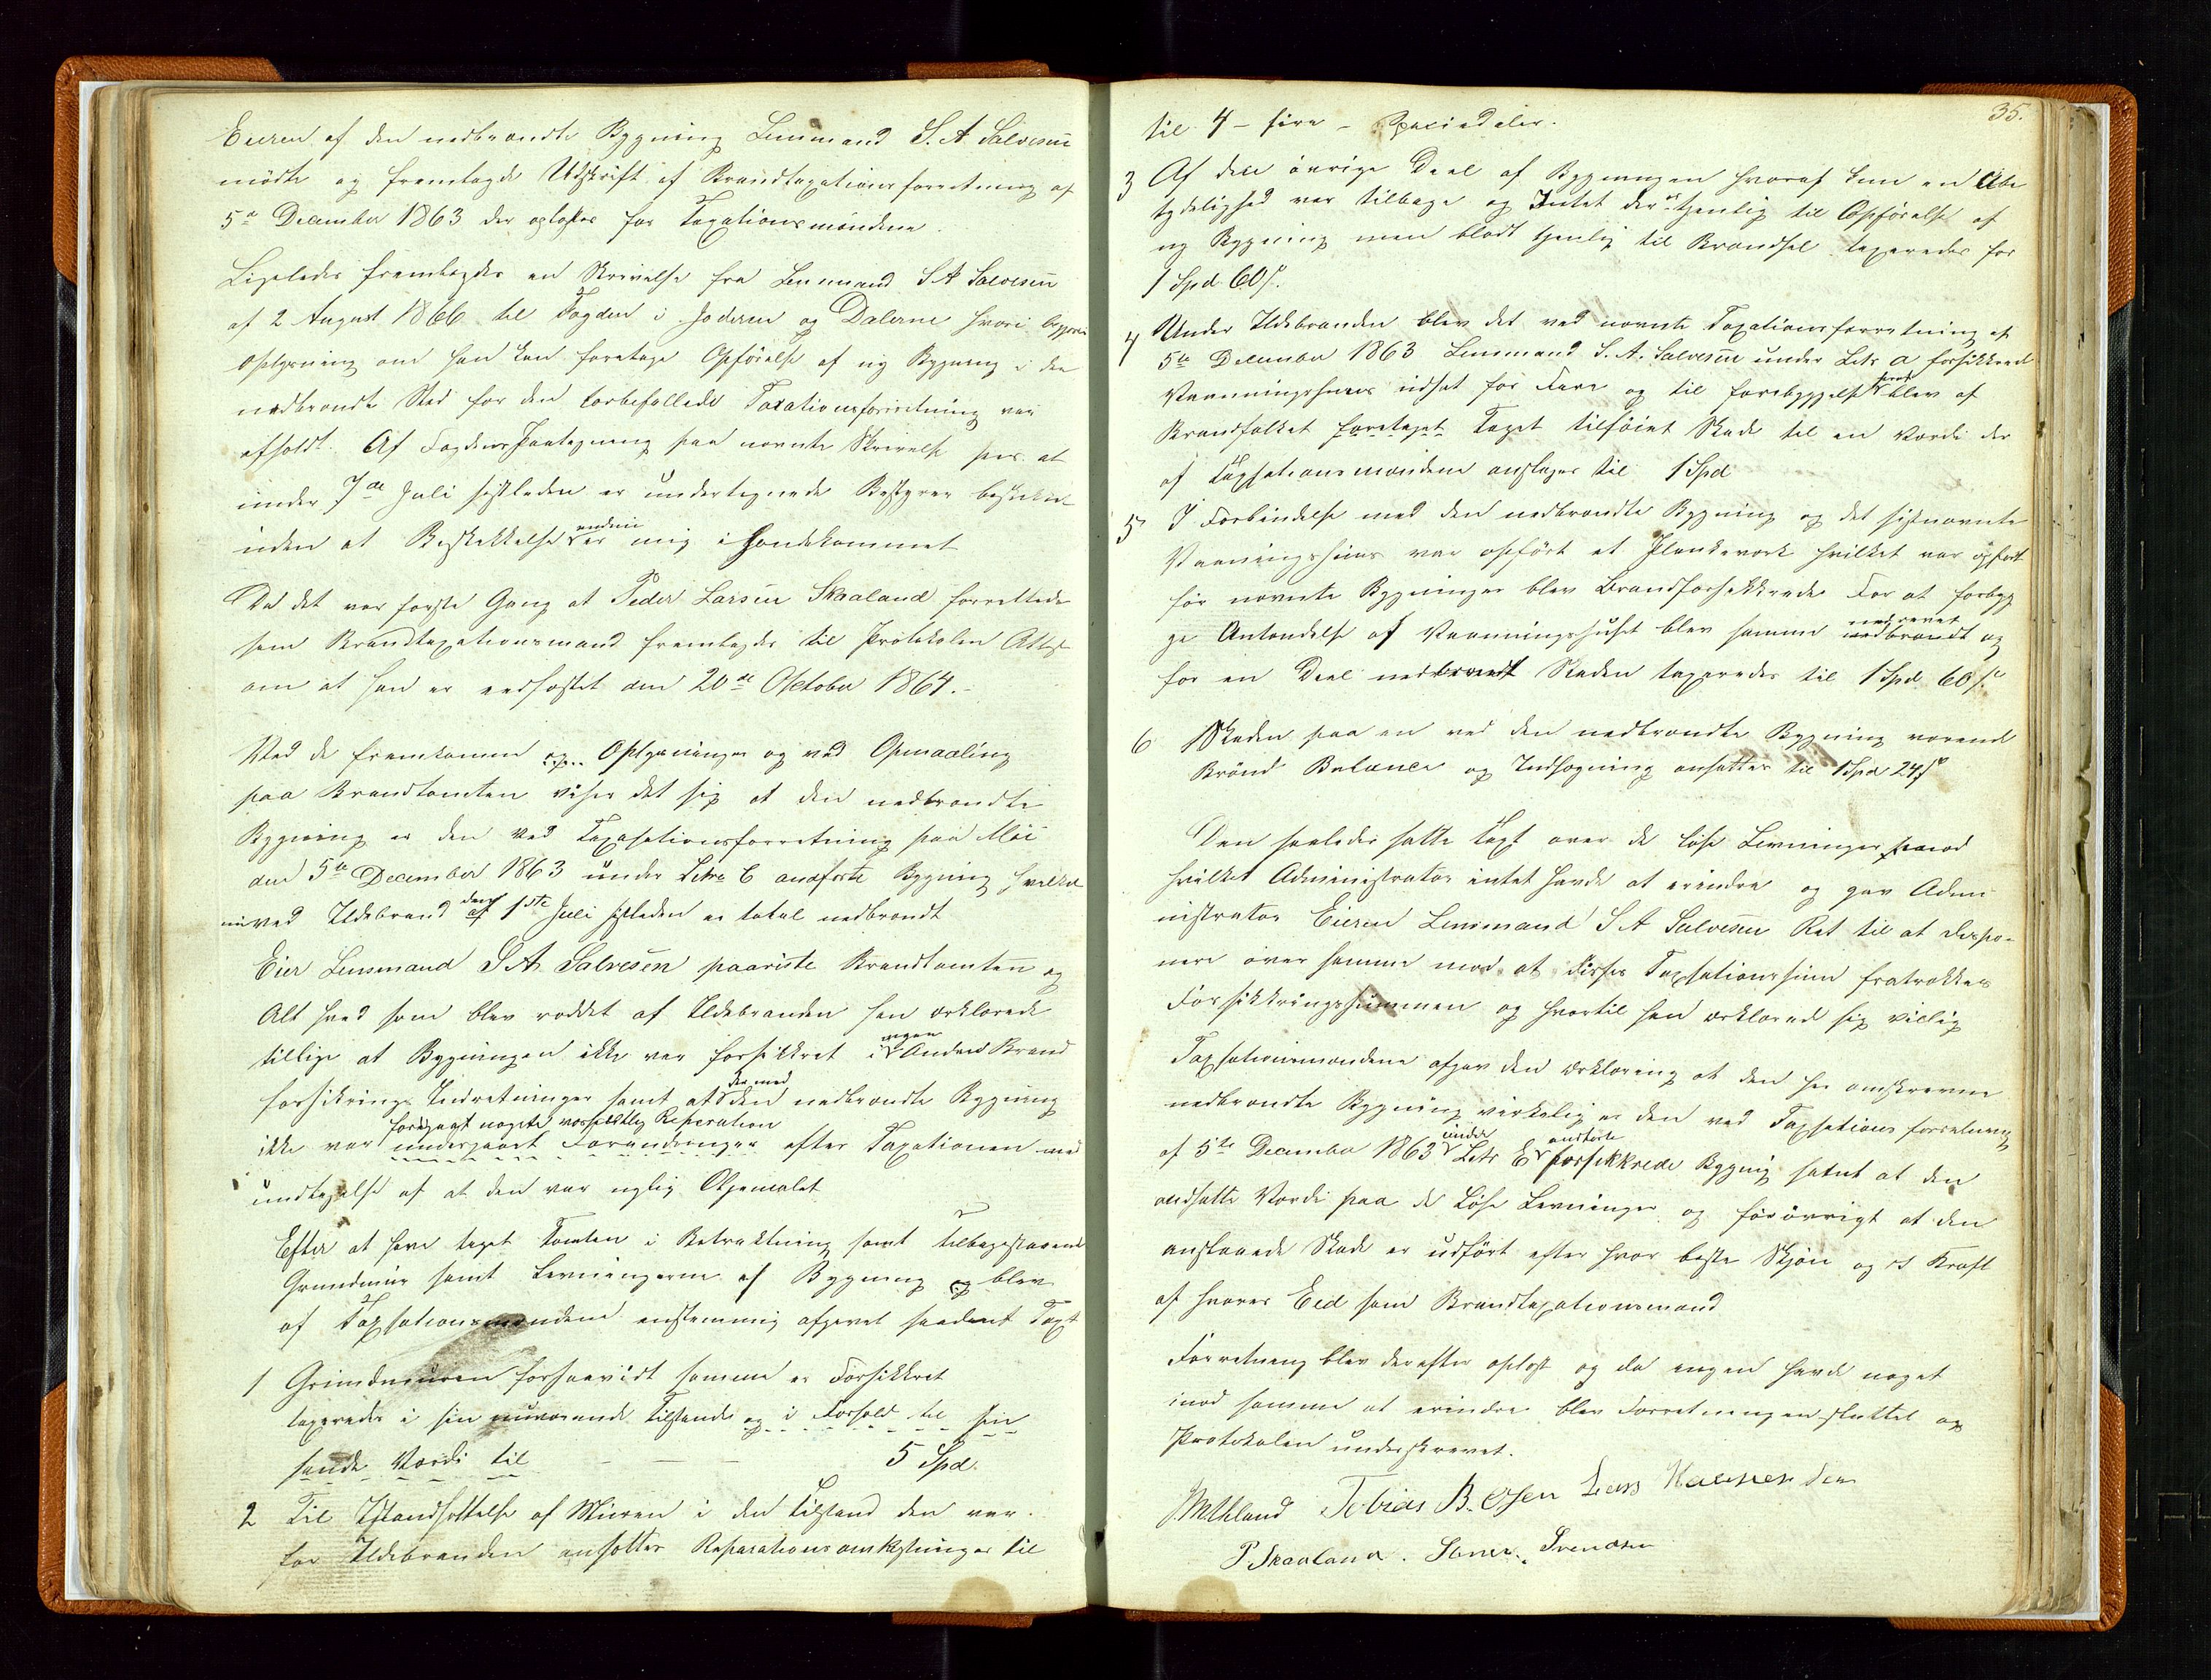 Eieren af den nedbrændte Bygning Lensmand S. A. Salvesen
mödte og fremlagde Udskrift af Brandtaxationsforretning af
5te December 1863 der oplæstes for Taxationsmændene.
Ligeledes fremlagdes en Skrivelse fra Lensmand S A Salvesen
af 2 August 1866 til Fogden i Jæderen og Dalerne hvori begjæres
Oplysning om han kan foretage Opförelse af ny Bygning i det
nedbrændte Sted før den anbefallede Taxationsforretning var
afholdt. Af Fogdens Paategning paa nævnte Skrivelse sees at
under 7de Juli sistleden er undertegnede Bestyrer beskikket
uden at Beskikkelse endnu er mig ihændekommet
Da det var første Gang at Peder Larsen Skaaland forrettede
som Brandtaxationsmand fremlagdes til Protokolen Attest
om at han er eedfæstet den 20de Oktober 1864.
Ved de fremkomne Oplysninger og ved Opmaaling
paa Brandtomten viser det sig at den nedbrændte
Bygning er den ved Taxsationsforretning paa Moi
den 5te December 1863 under Litra C anførte Bygning hvilken
nu ved Ildebrand den 1ste Juli sistleden er total nedbrændt
Eier Lensmand S A. Salvesen paaviste Brandtomten og
Alt hvad som blev reddet af Ildebranden han erklærede
tillige at Bygningen ikke var forsikkret i nogen Anden Brand
forsikrings Indretninger samt at den nedbrændte Bygning
foregaaet nogen væsentlig Reparation
ikke var undergaaet Forandringer efter Taxationen med
undtagelse af at den var nylig Opmalet
Efter at have taget Tomten i Betragtning samt tilbagestaaende
Grundmur samt Levningerne af Bygning og blev
af Taxsationsmændene enstemmig afgivet saadant Taxt
1 Grundmuren forsaavidt samme er Forsikkret
taxeredes i sin nuværende Tilstand og i Forhold til sin
sande Værdi til — — — 5 Spd.
2 Til Istandsættelse af Muren i den Tilstand den var
før Ildebranden ansættes Reparationsomkostninger til
35.
til 4 – fire – Speciedaler.
3 Af den övrige Deel af Bygningen hvoraf kun en
tydelighed var tilbage og Intet der er tjenlig til Opförelse af
ny Bygning men blodt tjenlig til Brændsel taxeredes for
1 Spd 60 s.
4 Under Ildebranden blev det ved nævnte Taxationsforretning af
5te December 1863 Lensmand S. A. Salvesen under Litr a forsikkrede
Vaaningshuus udsat for Fare og til forebyggelse heraf blev af
Brandfolket foretaget Taget tilföiet Skade til en Værdi der
af Taxsationsmændene anslages til 1 Spd
5 I Forbindelse med den nedbrændte Bygning og det sistnævnte
Vaaningshuus var opfört et Plankeværk hvilket var opfört
för nævnte Bygninger blev Brandforsikkrede For at forbyg
ge Antændelse af Vaaningshuset blev samme nedrevet og
for en Deel nedbrændt Skaden taxeredes til 1 Spd 60 s.
6 Skaden paa en ved den nedbrændte Bygning værende
Brönd Balance og Indhegning ansættes til 1 Spd 24 s
Den saaledes satte Taxt over de löse Levninger hvorimod
hvilket Administrator intet havde at erindre og gav Admi
nistrator Eieren Lensmand S A Salvesen Ret til at dispo-
nere över samme mod at disses Taxsationssum fratrækkes
Forsikkringssummen og hvortil han erklærede sig villig
Taxsationsmændene afgav den Erklæring at den her omskrevne
nedbrændte Bygning virkelig er den ved Taxsations forretning
af 5te December 1863 under Litr C anførte forsikkrede Bygnig samt at den
ansatte Værdi paa de Löse Levninger og forövrigt at den
anslaaede Skade er udfört efter hvor beste Skjön og i Kraft
af hvores Eed som Brandtaxationsmænd
Forretning blev derefter oplæst og da ingen havde noget
imod samme at erindre blev Forretningen sluttet og
Protokolen underskrevet.
Tobias B. Osen Lars
P. Skaaland. Svendsen